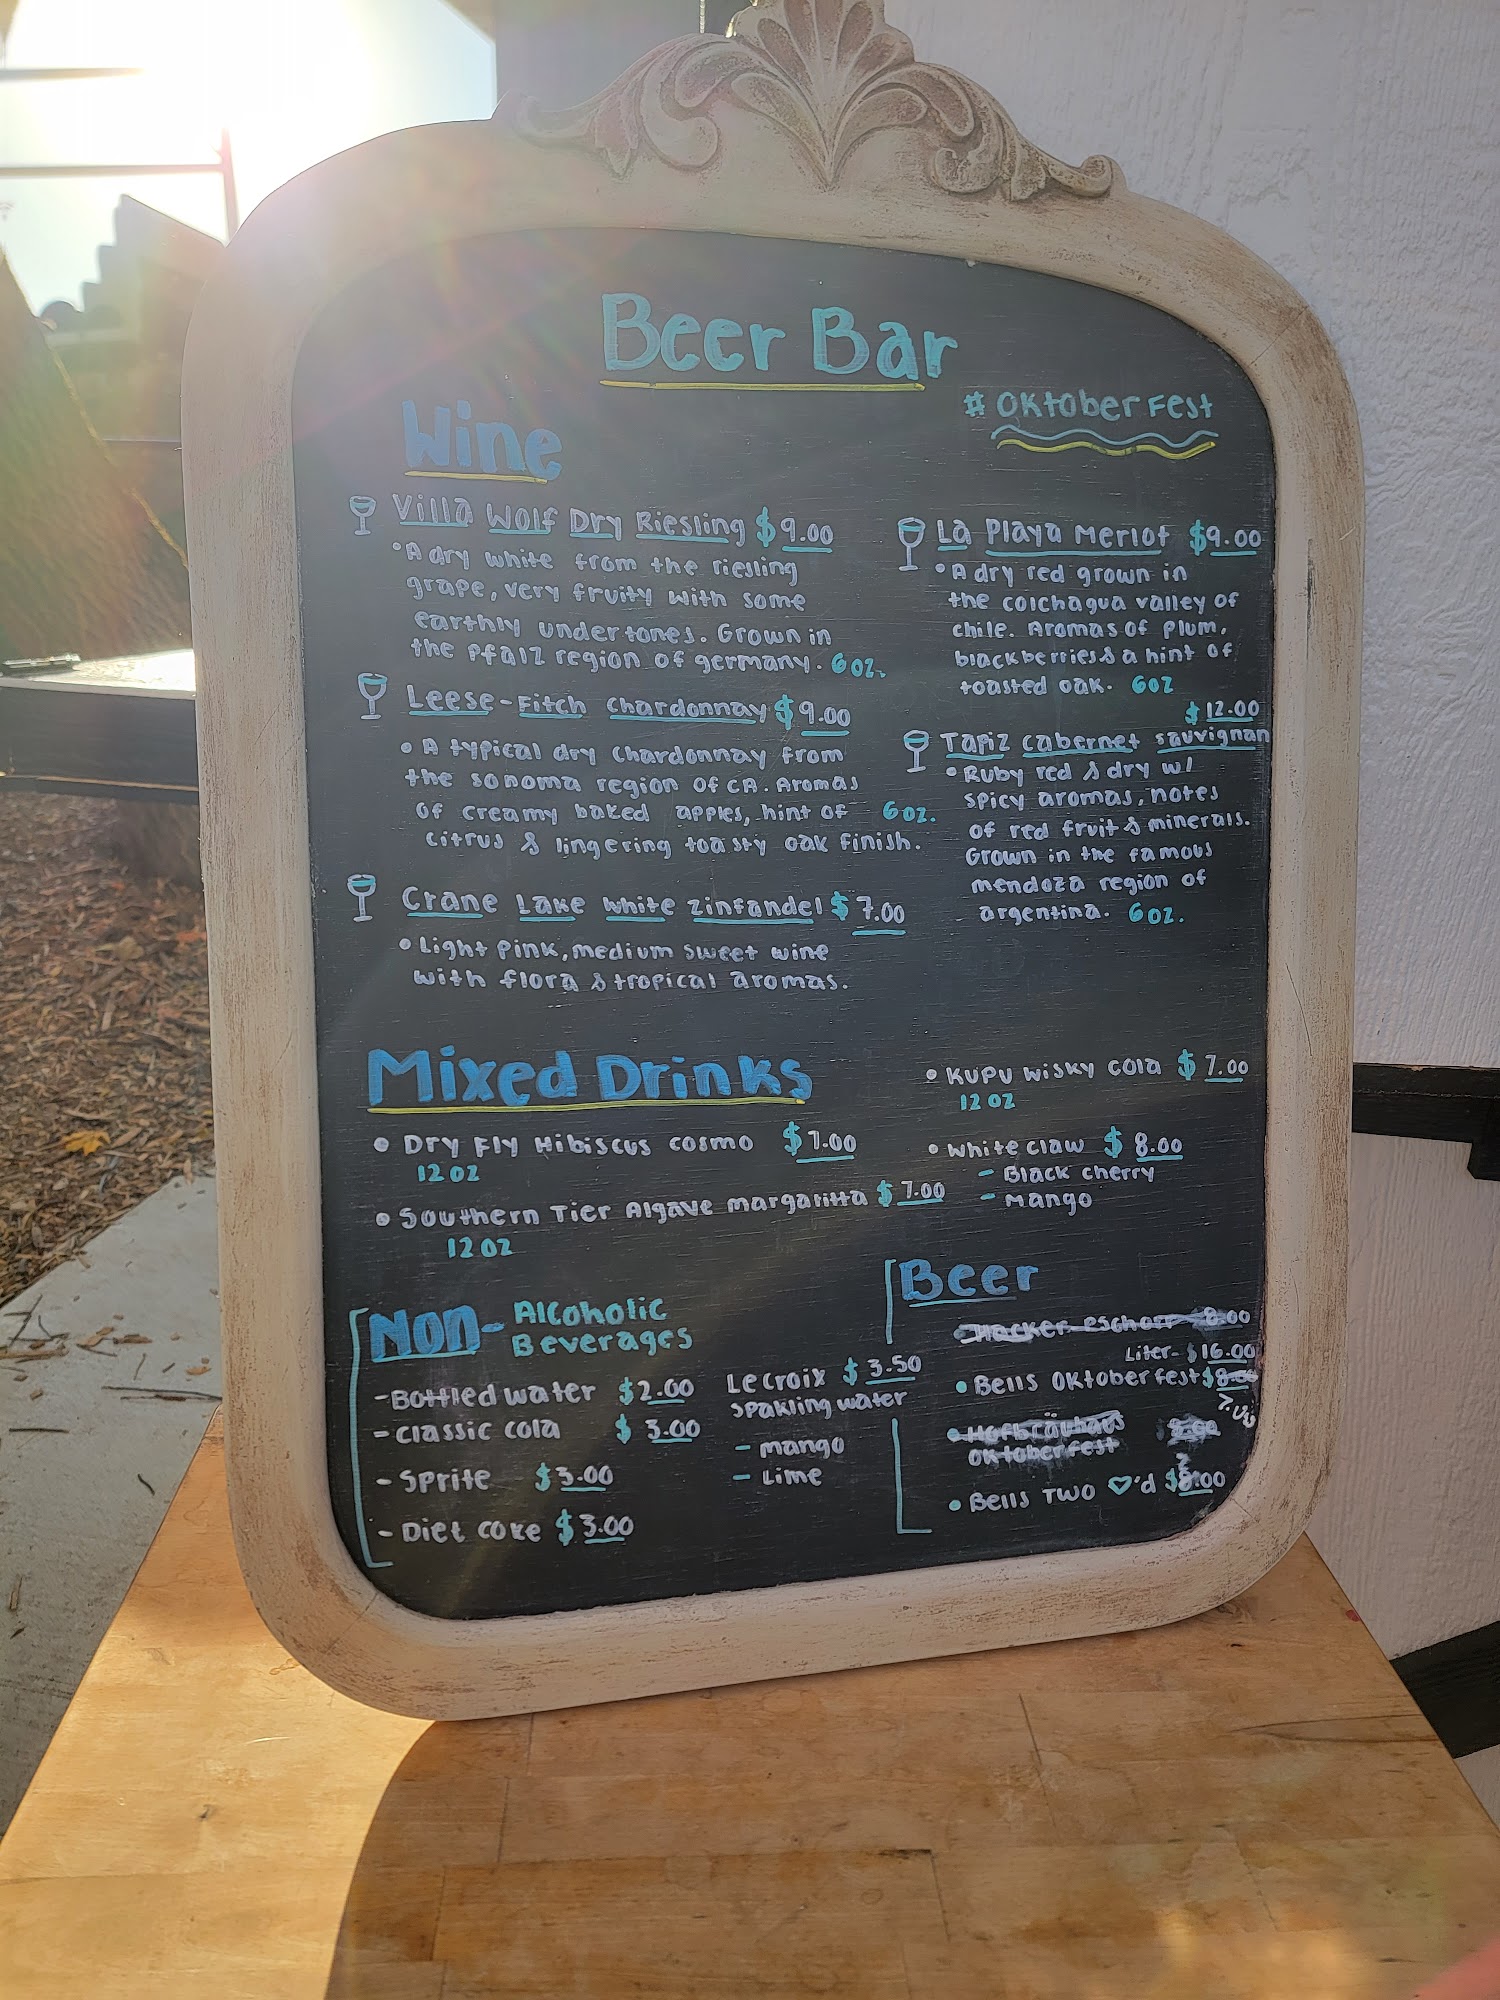 Beer Bar
# Oktober Fest
Wine
Villa Wolf Dry Riesling $9.00
•A dry white from the riesling
grape, very fruity with some
earthly undertones. Grown in
the Pfalz region of germany. 6oz.
Leese-Fitch Chardonnay $9.00
• A typical dry Chardonnay from
the sonoma region of CA. Aromas
of creamy baked apples, hint of 6oz.
citrus & lingering toasty oak finish.
Crane Lake White Zinfandel $7.00
•Light pink, medium sweet wine
with flora & tropical aromas.
La Playa Merlot $9.00
•A dry red grown in
the colchagua valley of
chile. Aromas of plum,
blackberries & a hint of
toasted oak. 6oz
$12.00
Tapiz cabernet sauvignan
•Ruby red & dry w/
spicy aromas, notes
of red fruit & minerals.
Grown in the famous
mendoza region of
argentina. 6oz.
Mixed Drinks
• Dry Fly Hibiscus cosmo $7.00
12oz
• Southern Tier Algave margaritta $7.00
12oz
• Kupu wisky cola $7.00
12oz
• White claw $8.00
- Black cherry
- Mango
Non- Alcoholic
Beverages
-Bottled water $2.00
-classic cola $3.00
- Sprite $3.00
- Diet coke $3.00
Lecroix $3.50
Spakling water
- mango
- Lime
Beer
Hacker-Pschorr 8.00
Liter- $16.00
• Bells Oktoberfest $8.00
7.00
• Hofbräuhaus
Oktoberfest
• Bells Two ♡'d $8.00